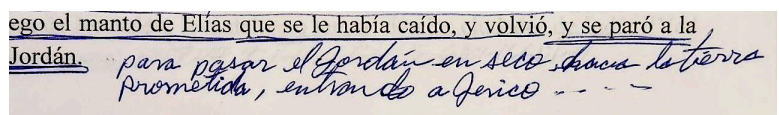 ego el manto de Elías que se le había caído, y volvió, y se paró a la
Jordán. para pasar el Jordán en seco, hacia la tierra
prometida, entrando a Jerico - - - -